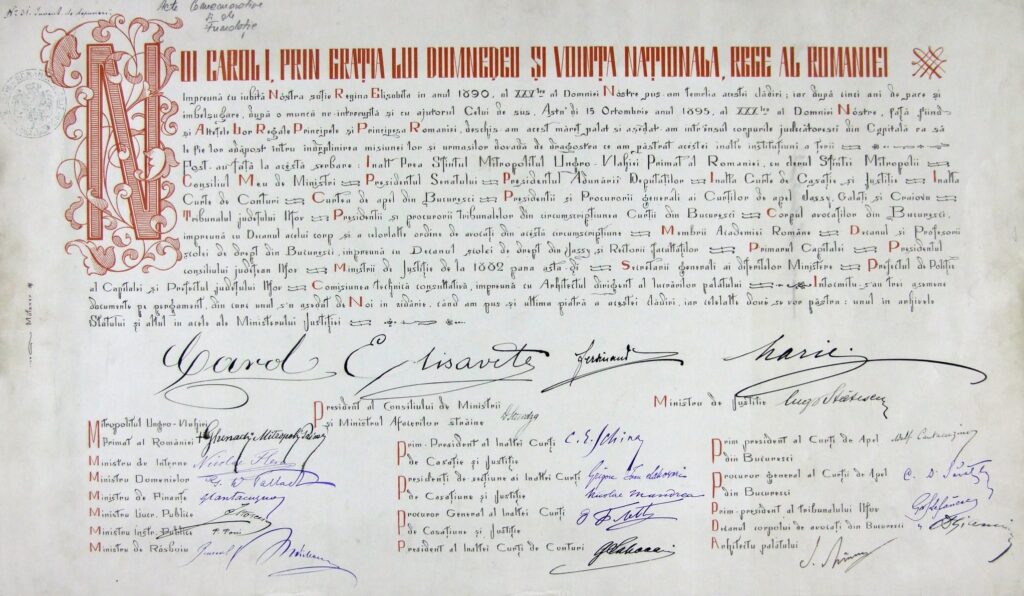 Acte Comemorative
și de
Fundație
NOI CAROL I, PRIN GRAȚIA LUI DUMNEDEU ȘI VOINȚA NAȚIONALA, REGE AL ROMANIEI
Impreună cu iubita Nóstra soție Regina Elisabeta in anul 1890, al XXV lea al Domniei Nóstre pus-am temelia acestei cladiri; iar după cinci ani de pace și
imbelșugare, după o muncă ne-intreruptă și cu ajutorul Celui de sus. Astă-di 15 Octombrie anul 1895, al XXX lea al Domniei Nóstre, față fiind
și Altețele Lor Regale Principele și Principesa Romaniei, deschis-am acest măreț palat și așezat-am intr'insul corpurile judecătoresci din Capitală ca să
le fie lor adăpost intru indeplinirea misiunei lor și urmașilor dovada de dragostea ce am păstrat acestei inalte instituțiuni a țerii
Post-au față la acéstă serbare: Inalt Prea Sfintitul Mitropolitul Ungro-Vlahiei Primat al Romaniei, cu clerul Sfintei Mitropolii
Consiliul Meu de Ministri Președintul Senatului Președintul Adunării Deputaților Inalta Curte de Casație și Justiție Inalta
Curte de Conturi Curtea de apel din Bucuresci Președintii și Procurorii generali ai Curților de apel Jassy, Galați și Craiova
Tribunalul județului Ilfov Președintii și procurorii tribunalelor din circumscripțiunea Curții din Bucuresci Corpul avocaților din Bucuresci,
impreună cu Decanul acelui corp și a celorlalte ordine de avocați din acéstă circumscripțiune Membrii Academiei Române Decanul și Profesorii
școlei de drept din Bucuresci, impreună cu Decanul școlei de drept din Jassy și Rectorii facultăților Primarul Capitalei Președintul
consiliului județean Ilfov Miniștrii de Justiție de la 1862 pana astă-di Secretarii generali ai diferitelor Ministere Prefectul de Poliție
al Capitalei și Prefectul județului Ilfov Comisiunea technică consultativă, impreună cu Arhitectul dirigent al lucrărilor palatului Intocmitu-s'au trei asemene
documente pe pergament, din care unul s'a așezat de Noi in zidărie, când am pus și ultima piatră a acestei cladiri, iar celelalte două se vor păstra: unul in arhivele
Statului și altul in acele ale Ministerului Justiției
Carol Elisaveta Ferdinand Marie
Președint al Consiliului de Ministrii
și Ministrul Afacerilor străine
Ministru de Justitie Eug Stătescu
Mitropolitul Ungro-Vlahiei
Primat al României + Ghenadie Metropolit Primat
Ministru de Interne Nicolae Fleva
Ministru Domenielor
Ministru de Finante G Cantacuzino
Ministru Lucr. Publice
Ministru Instr. Publice P. Poni
Ministru de Răsboiu General
Prim-Președint al Inaltei Curți
de Casație și Justiție C. E. Schina
Președinți de secțiune ai Inaltei Curți
de Casațiune și Justiție
Nicolae Mandrea
Procuror General al Inaltei Curți
de Casațiune și Justiție
Președint al Inaltei Curți de Conturi
Prim președint al Curții de Apel
din Bucuresci
Procuror general al Curții de Apel
din Bucuresci
Prim-președint al Tribunalului Ilfov
Decanul corpului de avocați din Bucuresci
Arhitectul palatului